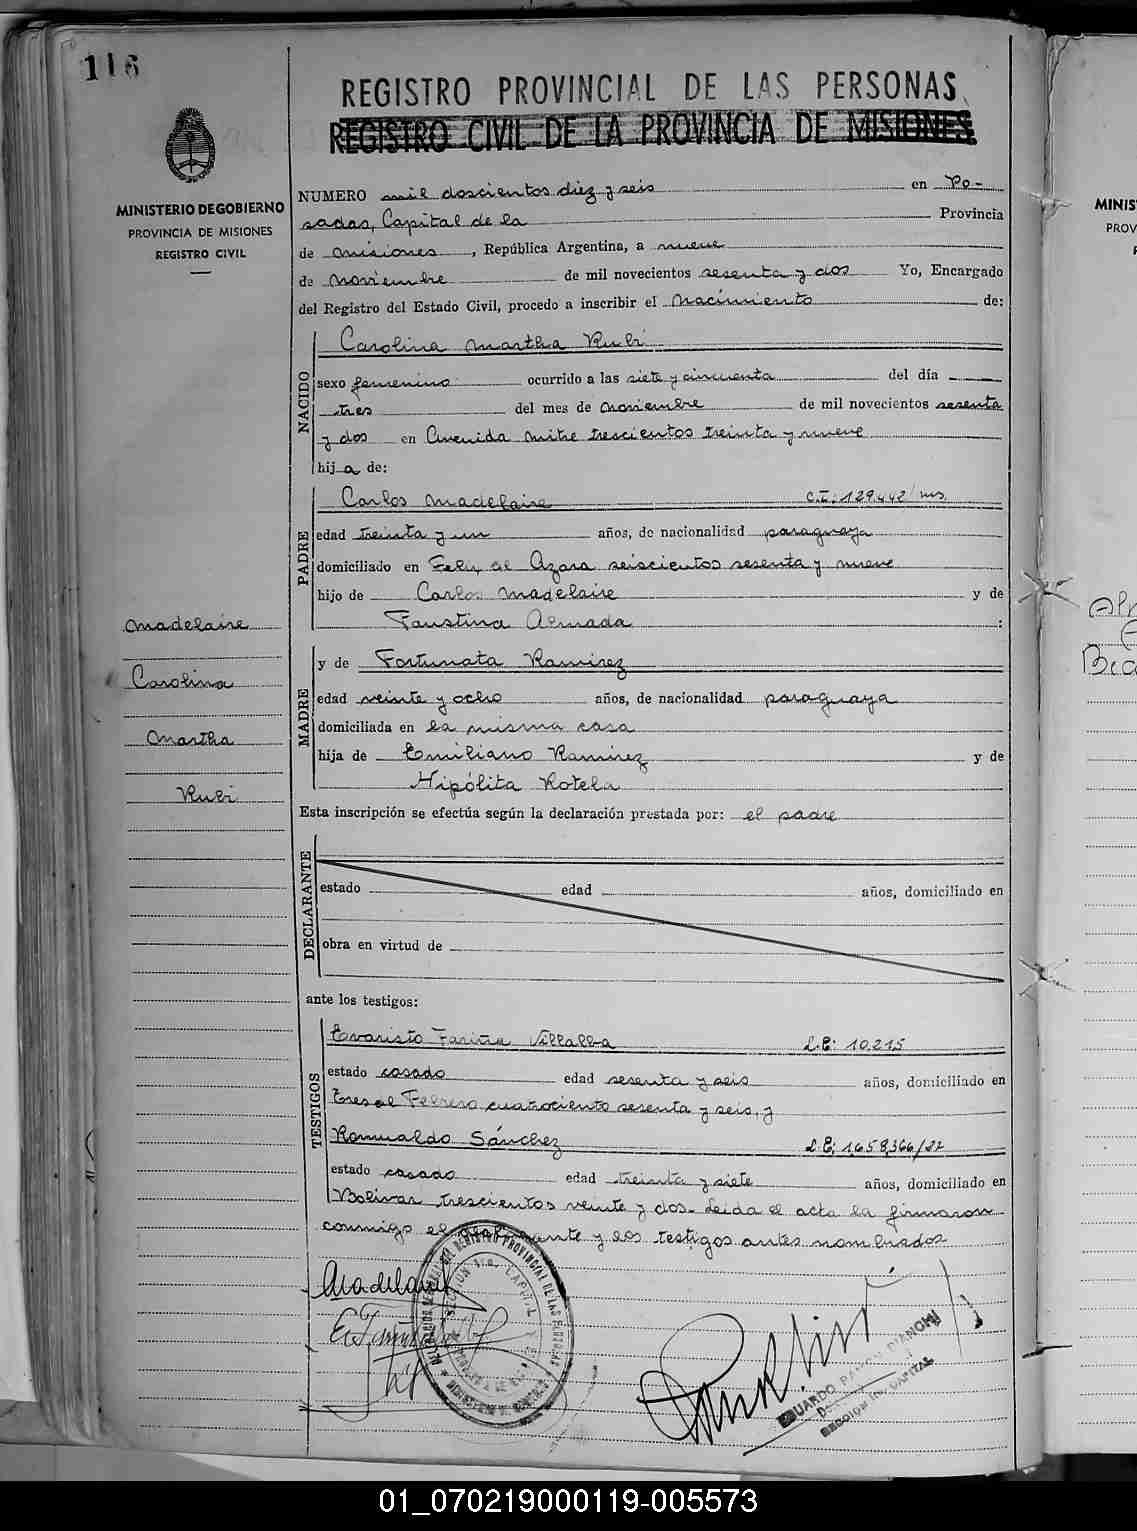 116
REGISTRO PROVINCIAL DE LAS PERSONAS
REGISTRO CIVIL DE LA PROVINCIA DE MISIONES
MINISTERIO DE GOBIERNO
PROVINCIA DE MISIONES
REGISTRO CIVIL
NUMERO mil doscientos diez y seis en Po-
sadas, Capital de la Provincia
de misiones, República Argentina, a nueve
de noviembre de mil novecientos sesenta y dos Yo, Encargado
del Registro del Estado Civil, procedo a inscribir el nacimiento de:
NACIDO
Carolina Martha Rubi
sexo femenino ocurrido a las siete y cincuenta del día
tres del mes de noviembre de mil novecientos sesenta
y dos en Avenida mitre trescientos treinta y nueve
hija de:
PADRE
Carlos Madelaire C.I: 129.442/ms.
edad treinta y un años, de nacionalidad paraguaya
domiciliado en Felix de Azara seiscientos sesenta y nueve
hijo de Carlos Madelaire y de
Faustina Almada :
MADRE
y de Fortunata Ramirez
edad veinte y ocho años, de nacionalidad paraguaya
domiciliada en la misma casa
hija de Emiliano Ramirez y de
Hipólita Rotela
Esta inscripción se efectúa según la declaración prestada por: el padre
DECLARANTE
estado edad años, domiciliado en
obra en virtud de
ante los testigos:
TESTIGOS
Evaristo Fariña Villalba L.E: 10.215
estado casado edad sesenta y seis años, domiciliado en
Tres de Febrero cuatrociento sesenta y seis, y
Romualdo Sánchez L.E: 1.658.366/22
estado casado edad treinta y siete años, domiciliado en
Bolivar trescientos veinte y dos- Leida el acta la firmaron
conmigo el declarante y los testigos antes nombrados
Madelaire
Carolina
Martha
Rubi
Madelaire
EDUARDO RAMON D'ANCHI
SECCION 1ra. CAPITAL
MINIS
PROV
01_070219000119-005573